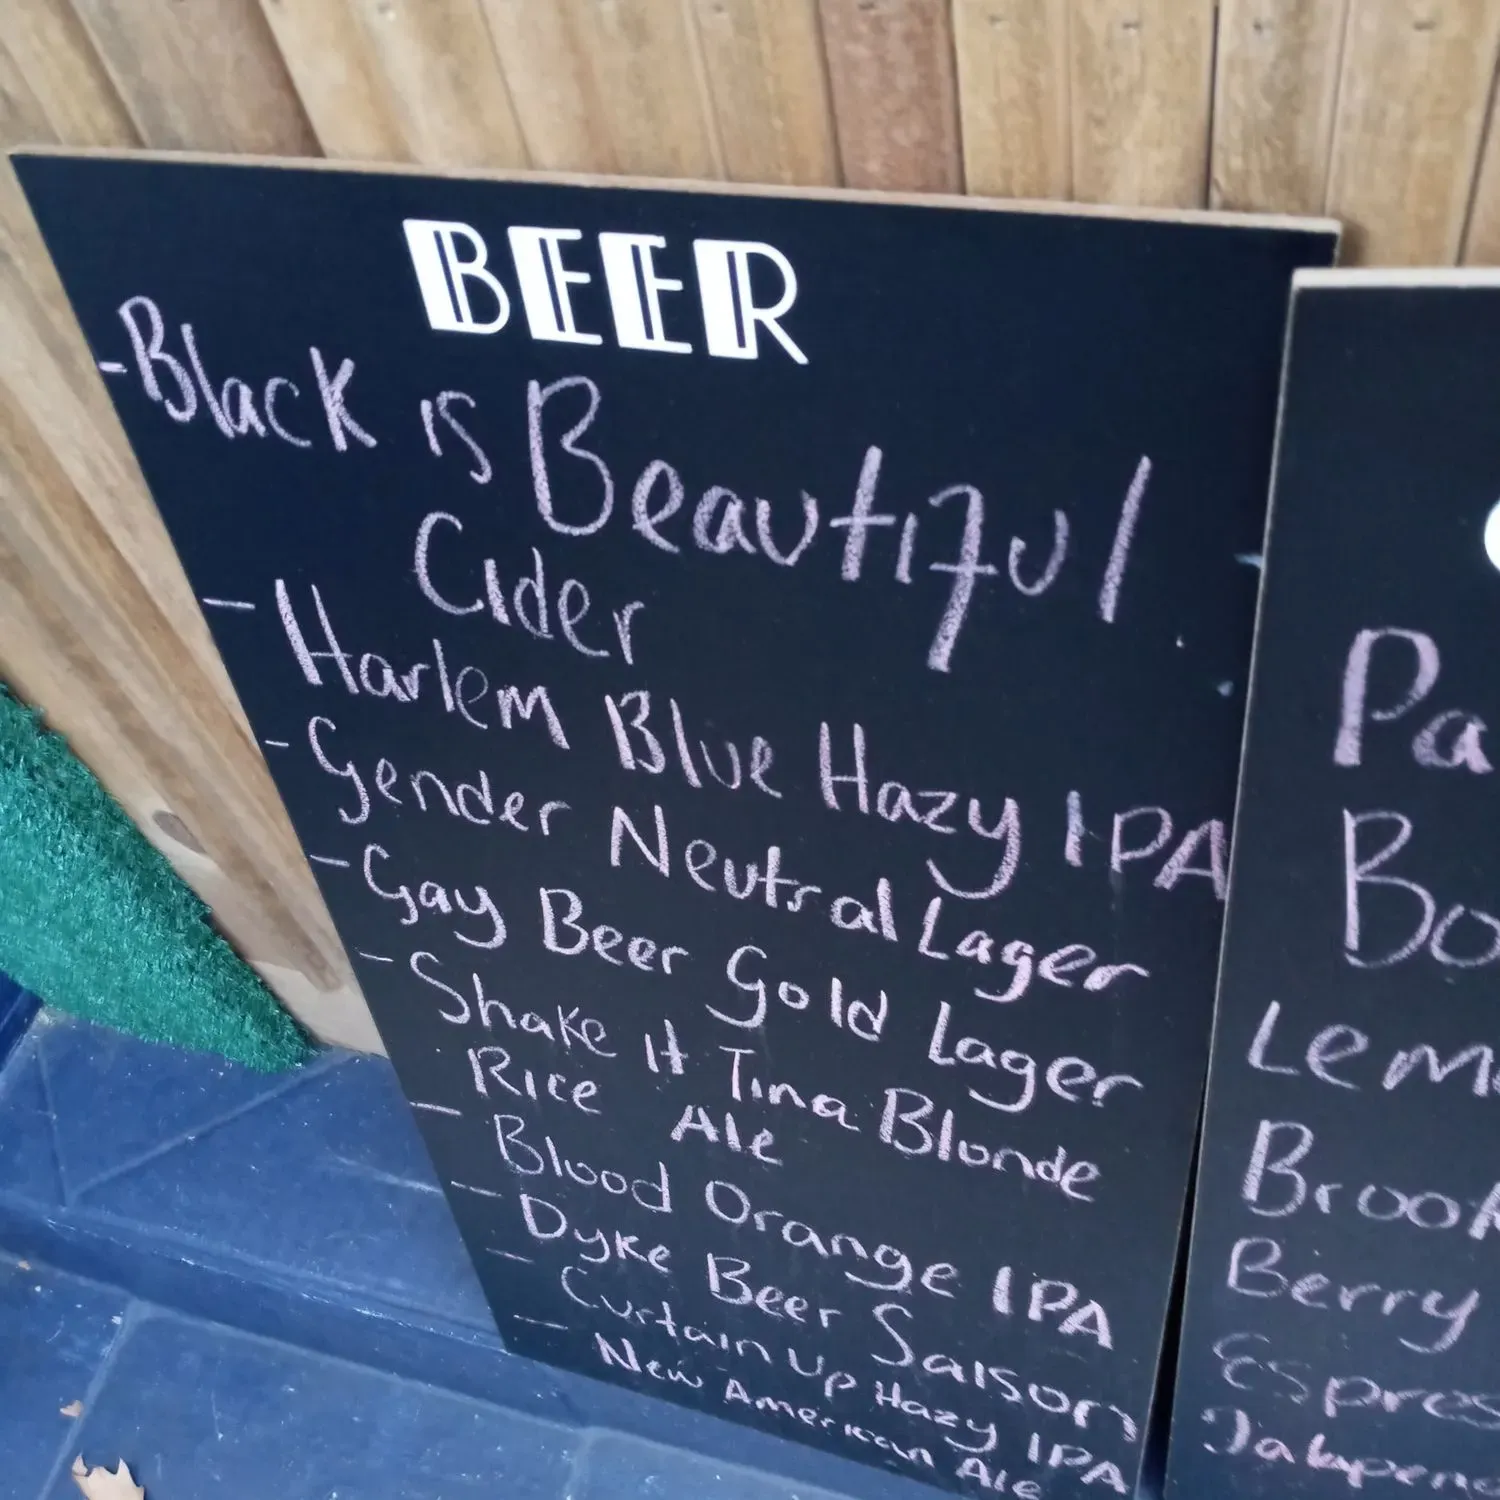 BEER
-Black is Beautiful
Cider
- Harlem Blue Hazy IPA
- Gender Neutral Lager
- Gay Beer Gold Lager
- Shake It Tina Blonde
Rice Ale
- Blood Orange IPA
- Dyke Beer Saison
- Curtain Up Hazy IPA
- New American Ale
Pa
Bo
Lem
Brook
Berry
Espres
Jalapeno